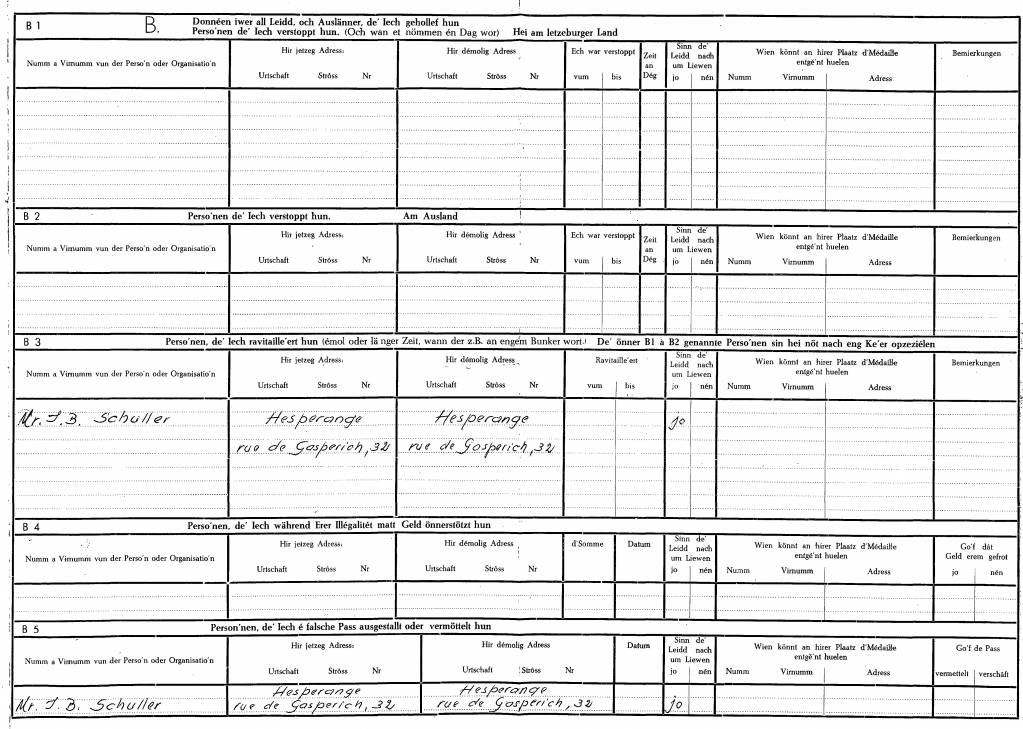 B 1 B. Donnéen iwer all Leidd, och Auslänner, de' Iech gehollef hun
Perso'nen de' Iech verstoppt hun. (Och wan et nömmen én Dag wor) Hei am letzeburger Land
Numm a Virnumm vun der Perso'n oder Organisatio'n
Hir jetzeg Adress:
Urtschaft Ströss Nr
Hir démolig Adress
Urtschaft Ströss Nr
Ech war verstoppt
vum bis
Zeit
an
Dég
Sinn de'
Leidd nach
um Liewen
jo nén
Wien könnt an hirer Plaatz d'Médaille
entgé'nt huelen
Numm Virnumm Adress
Bemierkungen
B 2 Perso'nen de' Iech verstoppt hun. Am Ausland
Numm a Virnumm vun der Perso'n oder Organisatio'n
Hir jetzeg Adress:
Urtschaft Ströss Nr
Hir démolig Adress
Urtschaft Ströss Nr
Ech war verstoppt
vum bis
Zeit
an
Dég
Sinn de'
Leidd nach
um Liewen
jo nén
Wien könnt an hirer Plaatz d'Médaille
entgé'nt huelen
Numm Virnumm Adress
Bemierkungen
B 3 Perso'nen, de' Iech ravitaille'ert hun (émol oder länger Zeit, wann der z.B. an engem Bunker wort.) De' önner B1 à B2 genannte Perso'nen sin hei nöt nach eng Ke'er opzeziélen
Numm a Virnumm vun der Perso'n oder Organisatio'n
Hir jetzeg Adress:
Urtschaft Ströss Nr
Hir démolig Adress
Urtschaft Ströss Nr
Ravitaille'ert
vum bis
Sinn de'
Leidd nach
um Liewen
jo nén
Wien könnt an hirer Plaatz d'Médaille
entgé'nt huelen
Numm Virnumm Adress
Bemierkungen
Mr. J.B. Schuller Hesperange Hesperange jo
rue de Gasperich, 32 rue de Gosperich, 32
B 4 Perso'nen, de' Iech während Erer Illégalitét matt Geld önnerstötzt hun
Numm a Virnumm vun der Perso'n oder Organisatio'n
Hir jetzeg Adress:
Urtschaft Ströss Nr
Hir démolig Adress
Urtschaft Ströss Nr
d'Somme
Datum
Sinn de'
Leidd nach
um Liewen
jo nén
Wien könnt an hirer Plaatz d'Médaille
entgé'nt huelen
Numm Virnumm Adress
Go'f dât
Geld erem gefrot
jo nén
B 5 Person'nen, de' Iech é falsche Pass ausgestallt oder vermöttelt hun
Numm a Virnumm vun der Perso'n oder Organisatio'n
Hir jetzeg Adress:
Urtschaft Ströss Nr
Hir démolig Adress
Urtschaft Ströss Nr
Datum
Sinn de'
Leidd nach
um Liewen
jo nén
Wien könnt an hirer Plaatz d'Médaille
entgé'nt huelen
Numm Virnumm Adress
Go'f de Pass
vermettelt verschâft
Hesperange Hesperange
Mr. J.B. Schuller rue de Gasperich, 32 rue de Gosperich, 32 jo